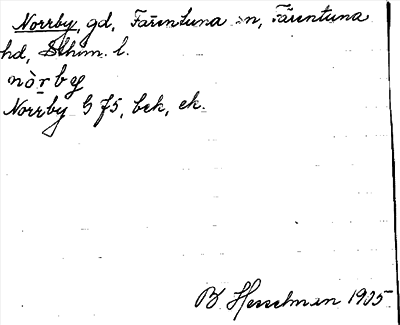 Norrby, gd, Färentuna sn, Färentuna
hd, Sthm. l.
nòrby
Norrby G f5, bek, ek.
B. Hesselman 1905